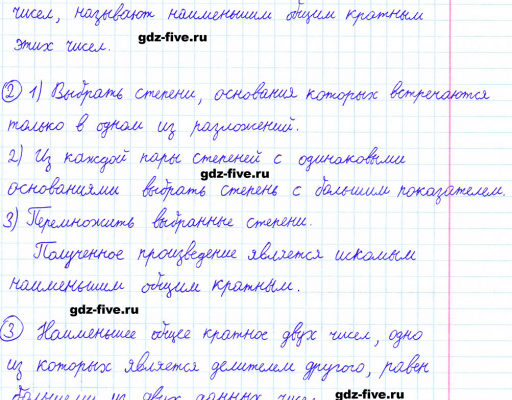 чисел, называют наименьшим общим кратным
gdz-five.ru
этих чисел.
2 1) Выбрать степени, основания которых встречаются
только в одном из разложений.
2) Из каждой пары степеней с одинаковыми
gdz-five.ru
основаниями выбрать степень с большим показателем.
3) Перемножить выбранные степени.
Полученное произведение является искомым
наименьшим общим кратным.
gdz-five.ru
3 Наименьшее общее кратное двух чисел, одно
из которых является делителем другого, равен
большему из двух данных чисел
gdz-five.ru